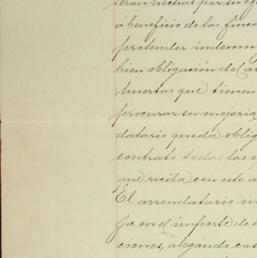 serán hechas por su c
ó beneficio de las finca
pretender indemn
bien obligación del ar
huertos que tienen
procurar su mejoría
datario queda oblig
contrato todas las e
que reciba con este a
El arrendatario n
ja en el importe de
ciones, alegando cas